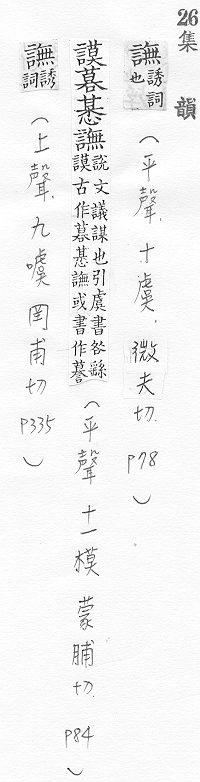 26集韻
譕誘詞也（平聲．十虞．微夫切．P78）
謨暮惎譕說文議謀也引虞書咎繇謨古作暮惎譕或書作謩（平聲 十一模 蒙脯切．P84）
譕誘詞（上聲．九噳 罔甫切 P335）